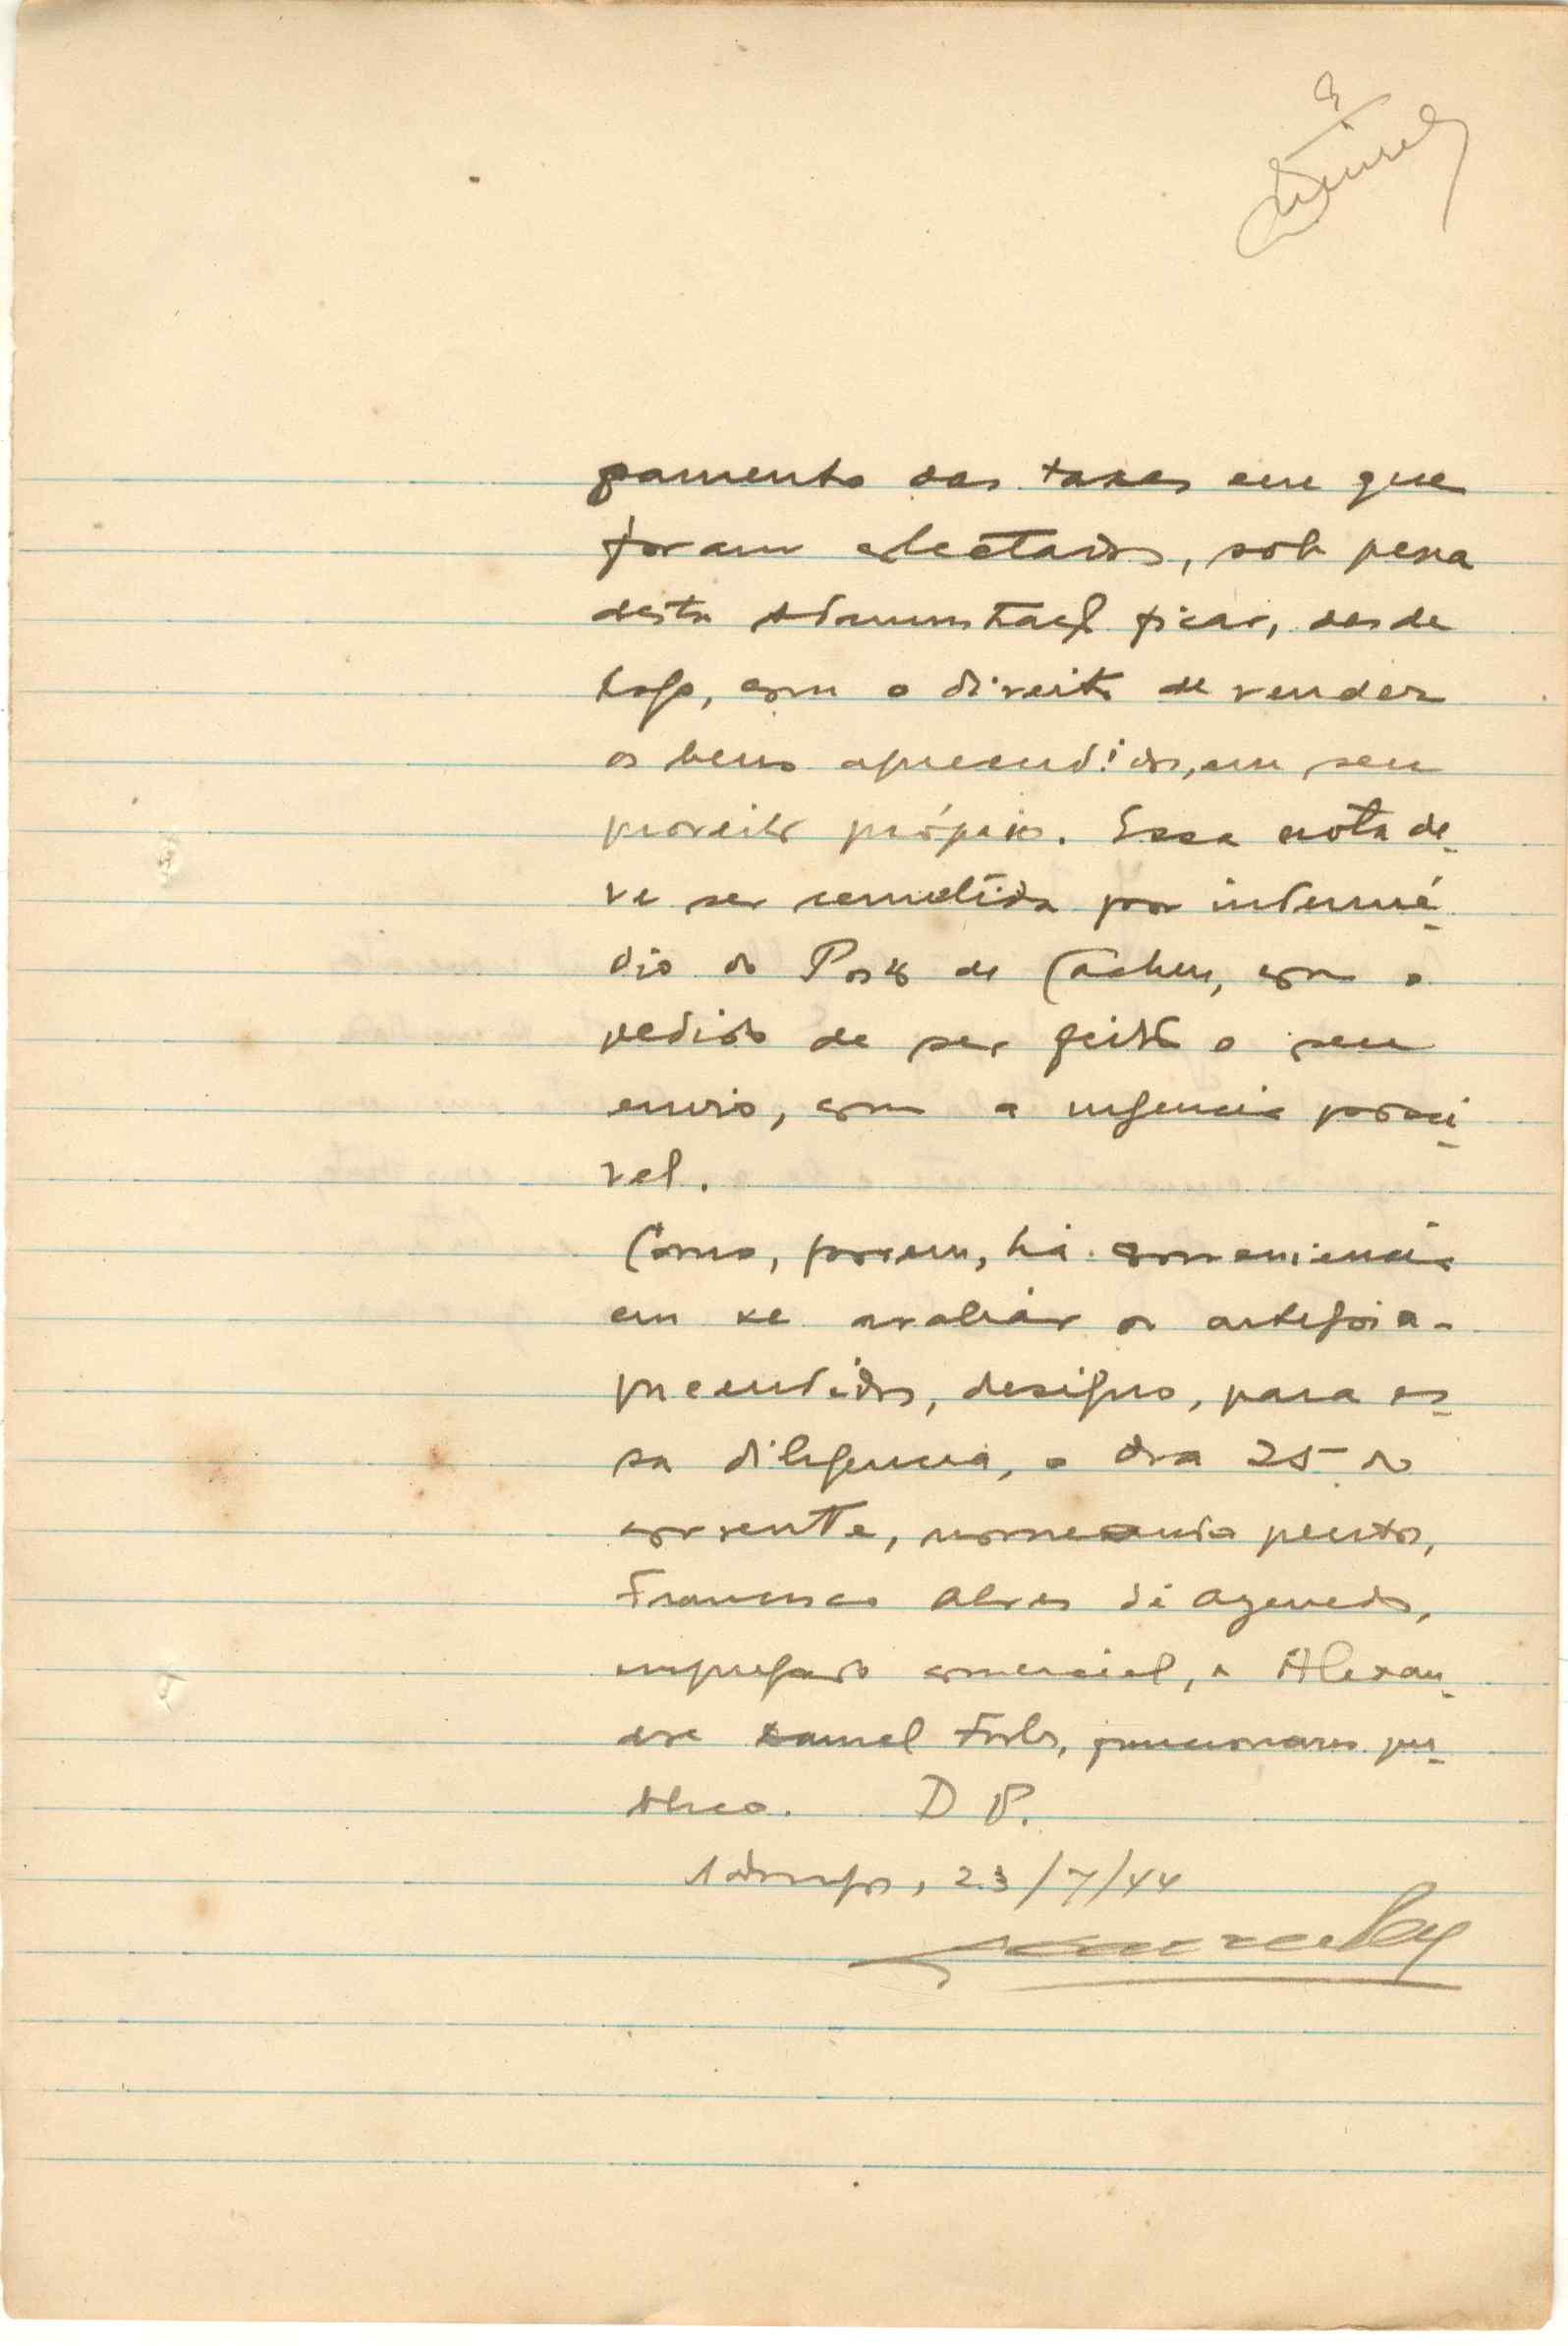 gamento das taxas em que
foram colectados, sob pena
desta Administração ficar, desde
logo, com o direito de vender
os bens apreendidos, em seu
proveito próprio. Essa nota de-
ve ser remetida por intermé-
dio do Posto de Cacheu, com o
pedido de ser feito o seu
envio, com a urgencia possi-
vel.
Como, porem, há conveniencia
em se avaliar os artigos a-
preendidos, designo, para es-
sa diligencia, o dia 25 do
corrente, nomeando peritos,
Francisco Alves de Azevedo,
empregado comercial, e Alexan-
dre Daniel Forbs, funcionario pu-
blico. D P.
23/7/44